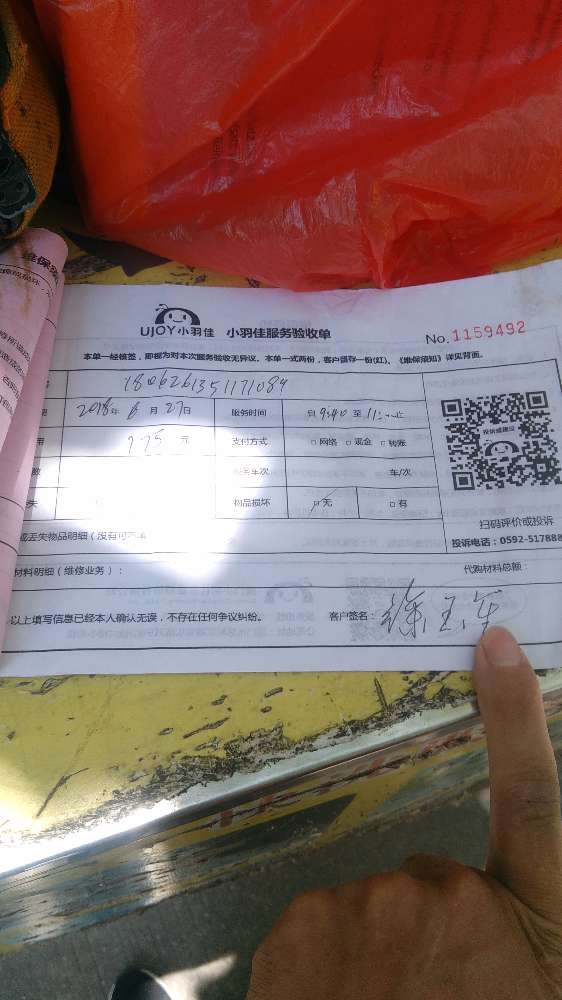 维保须
UJOY小羽佳 小羽佳服务验收单
No.1159492
本单一经核签,即视为对本次服务验收无异议。本单一式两份,客户留存一份(红)。《维保须知》详见背面。
1806261351171089
2018年 6月27日 服务时间 自9:40至11: 止
775元 支付方式 □网络 □现金 □转账
数 服务车次 车/次
失 物品损坏 □无 □有
投诉或建议
扫码评价或投诉
或丢失物品明细(没有可不填
投诉电话:0592-517888
材料明细(维修业务): 代购材料总额:
以上填写信息已经本人确认无误,不存在任何争议纠纷。 客户签名:徐玉军